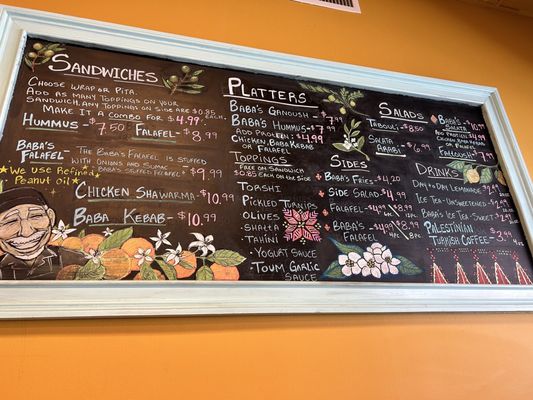 Sandwiches
Choose Wrap or Pita.
Add as many toppings on your
sandwich. Any toppings on side are $0.85 each.
Make it a combo for $4.99
Hummus - $7.50 Falafel - $8.99
Baba's
Falafel - The Baba's Falafel is stuffed
with onions and sumac $9.99
*We use Refined
Peanut oil*
Chicken Shawarma - $10.99
Baba Kebab - $10.99
Platters
Baba's Ganoush
Baba's Hummus - $7.99
Add Protein: $4.99
Chicken, Baba Kebab
or Falafel
Toppings
Free on Sandwich
$0.85 each on the Side
Torshi
Pickled Turnips
Olives
Shatta
Tahini
- Yogurt Sauce
Toum Garlic
Sauce
Salads
Tabouli - $8.50
Salata
Arabi - $6.99
Baba's
Salata $10.99
Add Protein $4.99
Falafel $4.99
Sides
Baba's Fries - $4.20
Side Salad - $4.99
Falafel - $4.99 $8.99
Baba's
Falafel
Drinks
Day to Day Lemonade
Ice Tea - Unsweetened
Baba's Ice Tea - Sweet
Palestinian
Turkish Coffee $3.99